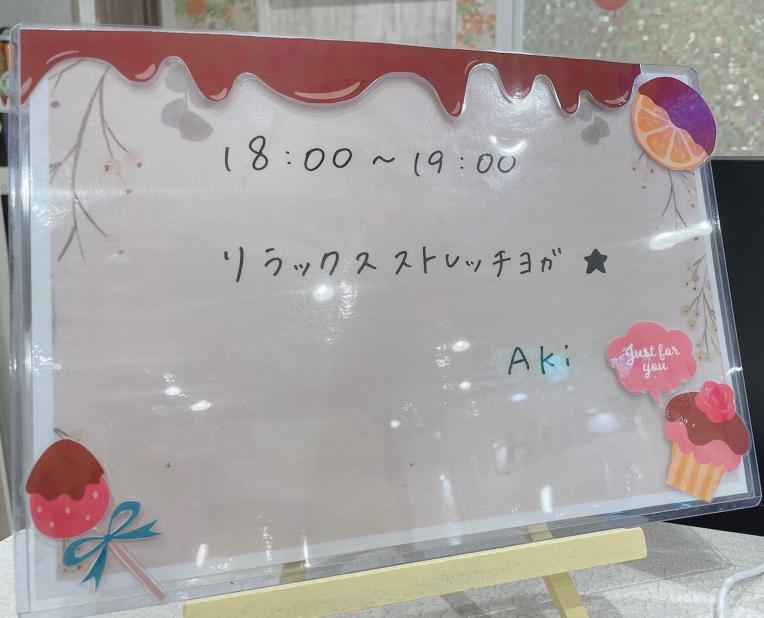 18:00～19:00
リラックスストレッチヨガ★
Aki
Just for
you